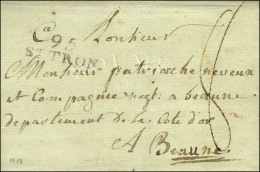 9
St TRON
Monsieur
Monsieur patriarche neveux
et Compagnie negt a beaune
departement de la Cote d'or
A Beaune